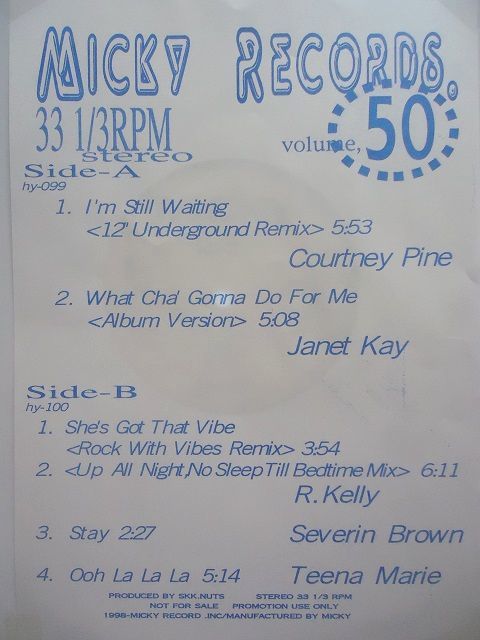 MICKY RECORDS.
33 1/3RPM
stereo
volume, 50
Side-A
hy-099
1. I'm Still Waiting
<12" Underground Remix> 5:53
Courtney Pine
2. What Cha' Gonna Do For Me
<Album Version> 5:08
Janet Kay
Side-B
hy-100
1. She's Got That Vibe
<Rock With Vibes Remix> 3:54
2. <Up All Night,No Sleep Till Bedtime Mix> 6:11
R.Kelly
3. Stay 2:27 Severin Brown
4. Ooh La La La 5:14 Teena Marie
PRODUCED BY SKK.NUTS STEREO 33 1/3 RPM
NOT FOR SALE PROMOTION USE ONLY
1998-MICKY RECORD .INC/MANUFACTURED BY MICKY